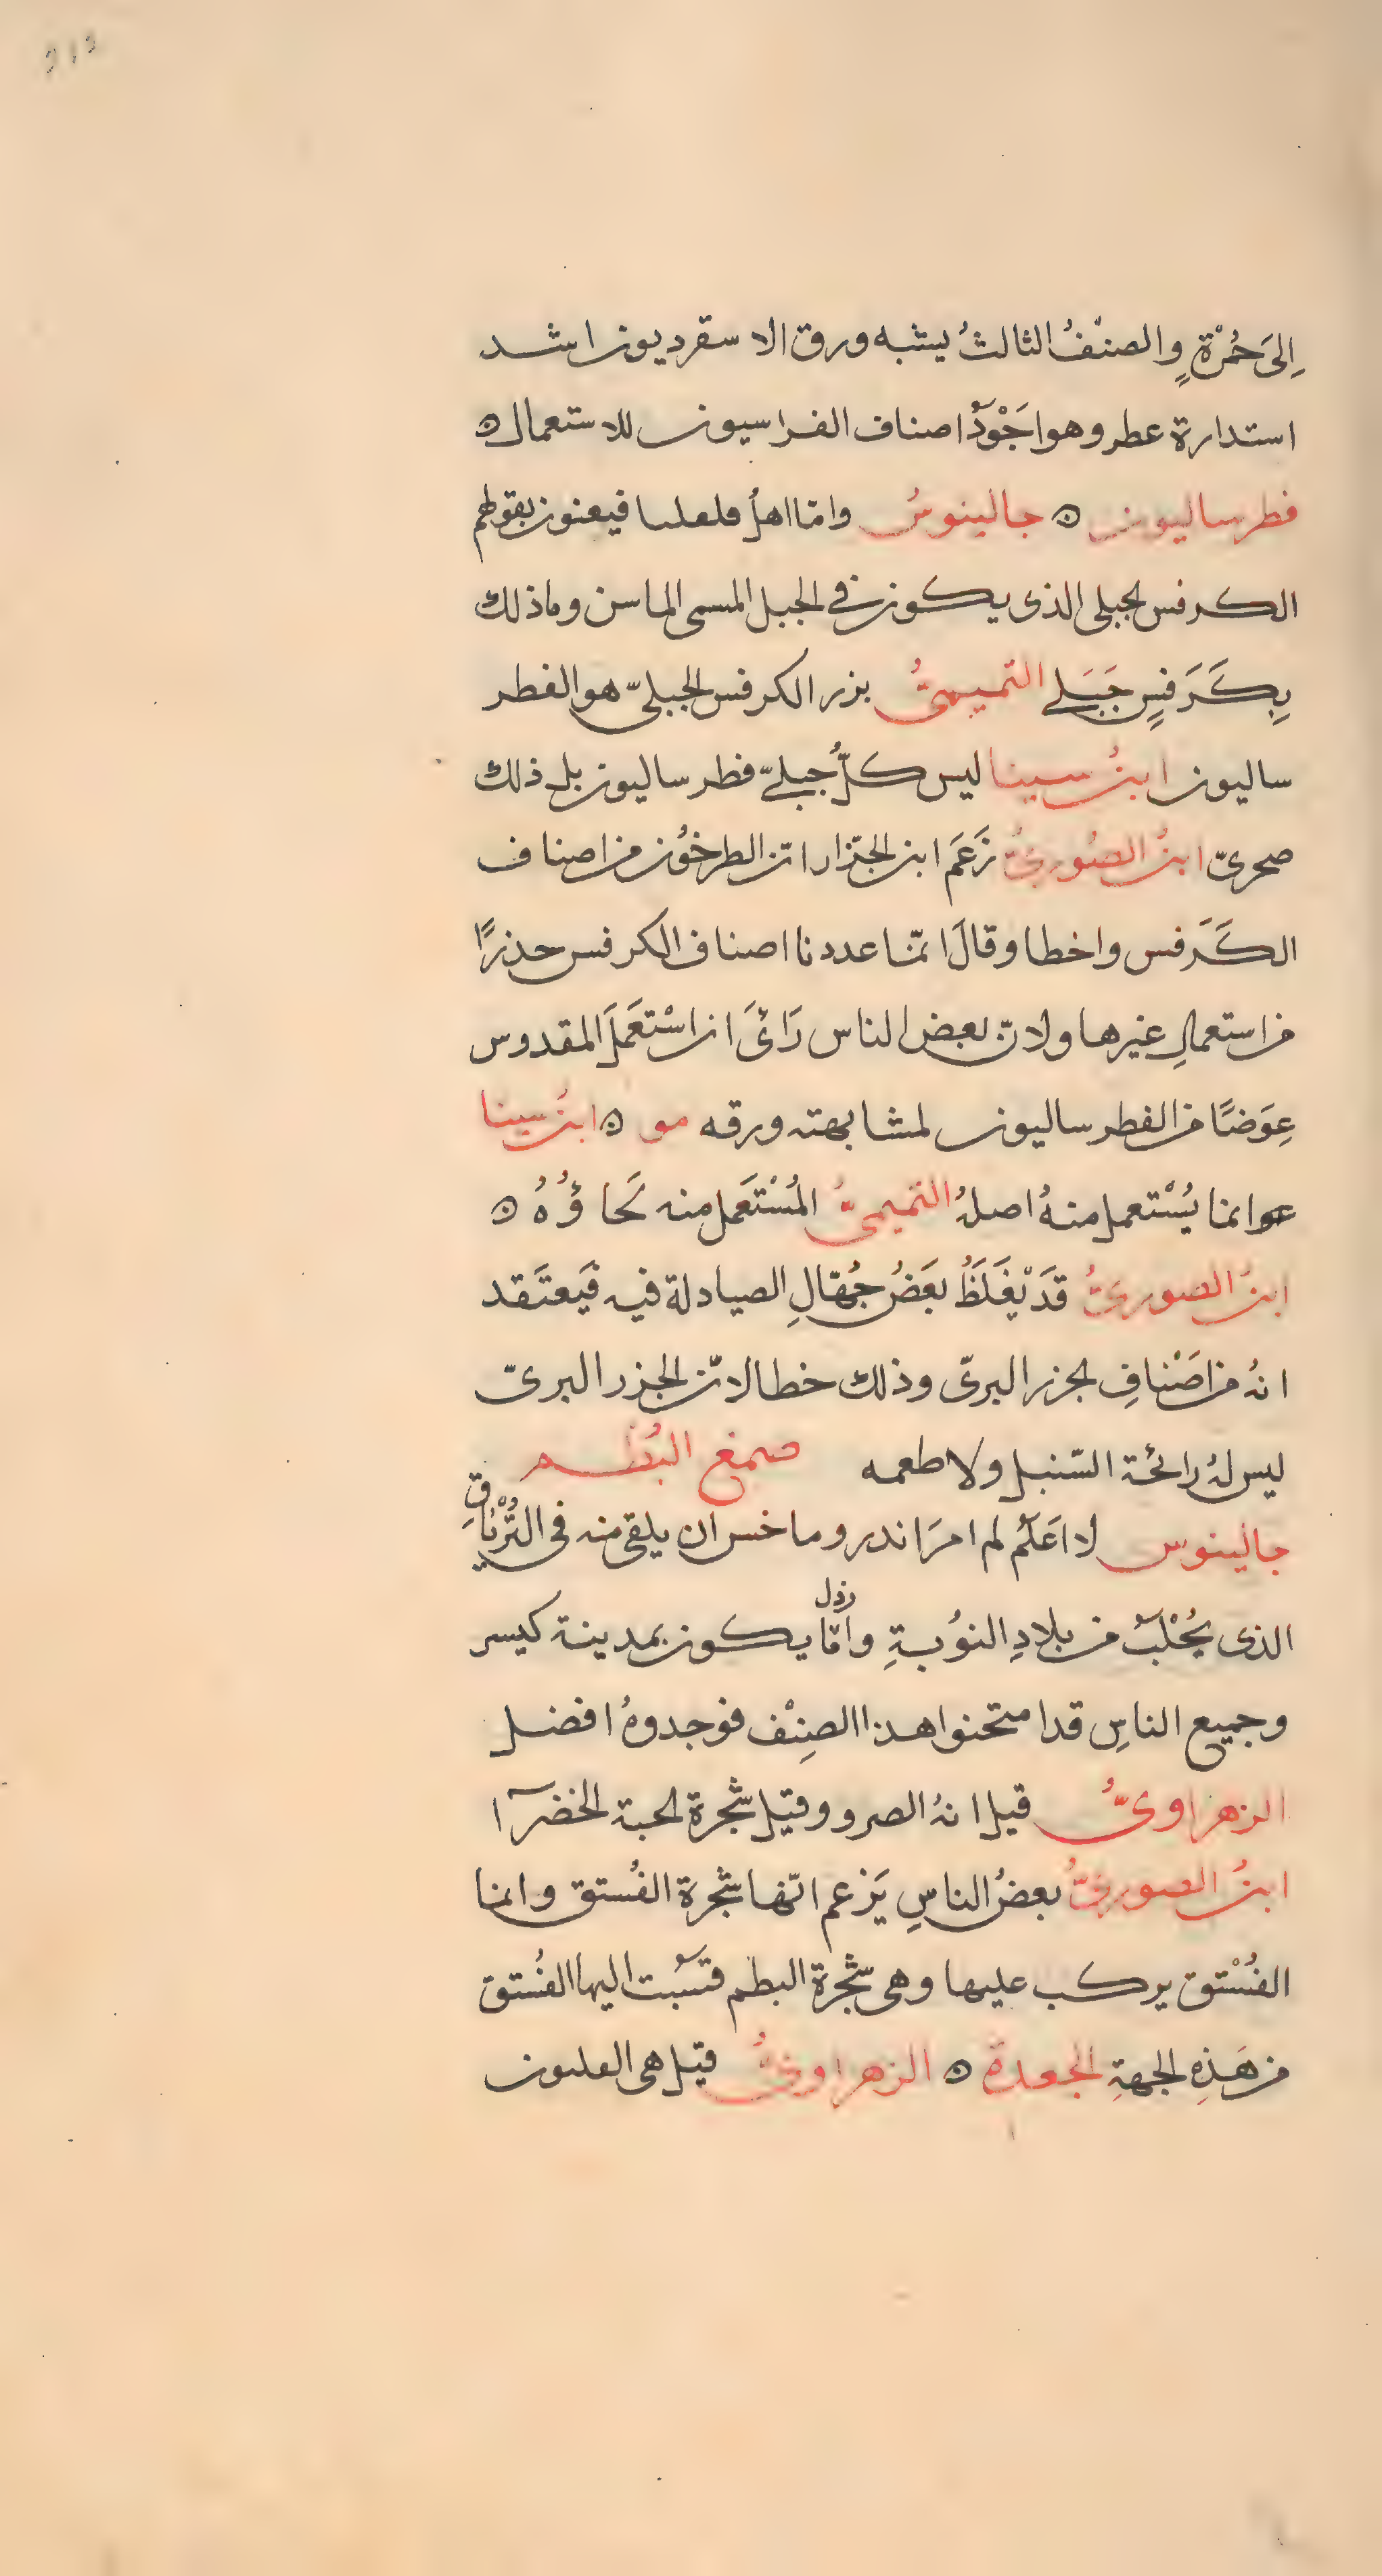 اِلىَ حُمْرَةٍ والصنْفُ الثالثُ يشبه ورق الاسقرديون اشد
استدارة عطر وهو اجَوْدُ اصناف الفراسيون للاستعمال ۞
فطرساليون ۞ جالينوسُ وامّا اهلُ ملعلىا فيعنون بقولهم
الكرفس الجبلى الذى يكون فى الجبل المسمى الماسن وما ذلك
بِكَرَفسٍ جَبَلى التميمىُّ بزر الكرفس الجبلىّ هو الفطر
ساليون ابنُ سينا ليس كلُّ جبلىّ فطرساليون بل ذلك
صحرىّ ابنُ الصُورىُّ زَعَمَ ابن الجزّار انّ الطرخُون من اصناف
الكَرَفس واخطا وقالَ انمّا عددنا اصناف الكرفس حذرًا
من استعمالِ غيرها ولانّ بعض الناس رَائَ ان اسْتعَمَلَ المقدوس
عِوَضًا من الفطرساليون لمشابهته ورقه مو ۞ ابنُ سينا
انما يُسْتعمل منهُ اصلهُ التميمىُّ المُسْتَعَمل منه لَحاؤُهُ ۞
ابنُ الصورىُّ قَدْ يْغَلَظُ بعَضُ جُهّالِ الصيادلة فيه فيَعتَقد
انهُ من اصَنْافِ الجزر البرىّ وذلك خطا لانّ الجزر البرىّ
ليس لهُ رائحة السّنبل ولا طعمه صمغ البُطم
جالينوس لا اعَلمُ لم امرَ اندروماخس ان يلقى منه فى التُرْياقِ
الذى يُجْلَبُ من بلادِ النوُبةِ وامّا يكون بمدينة كيسر
وجميع الناسِ قد امتحنوا هذا الصِنْف فوجدوهُ افضل
الزهراوىُّ قيل انهُ الصرو وقيل شجرة الحبة الخضرآا
ابنُ الصورىُّ بعضُ الناسِ يَزعم انّها شجرة الفُستق وانما
الفُسْتق يركب عليها وهى شجرة البطم فنَسُبت اليها الفُستق
من هَذِهِ الجهةِ الجعدة ۞ الزهراوىُّ قيل هى العلىون